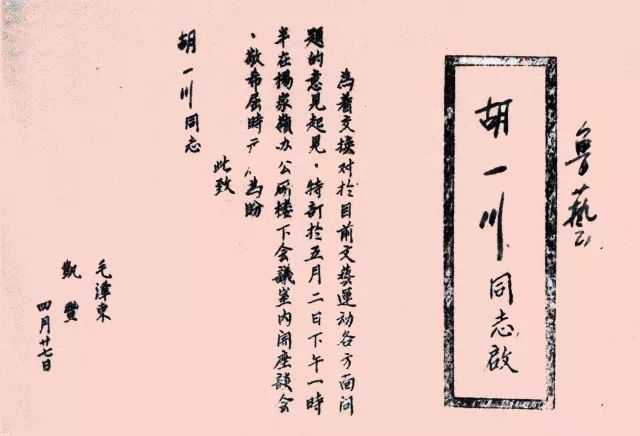 魯藝
胡一川同志啟
為着交換对於目前文藝運动各方面问
題的意見起見，特訂於五月二日下午一時
半在楊家嶺办公所楼下会議室内開座談会
，敬希屆時為盼
此致
胡一川同志
毛澤東
凱豐
四月廿七日